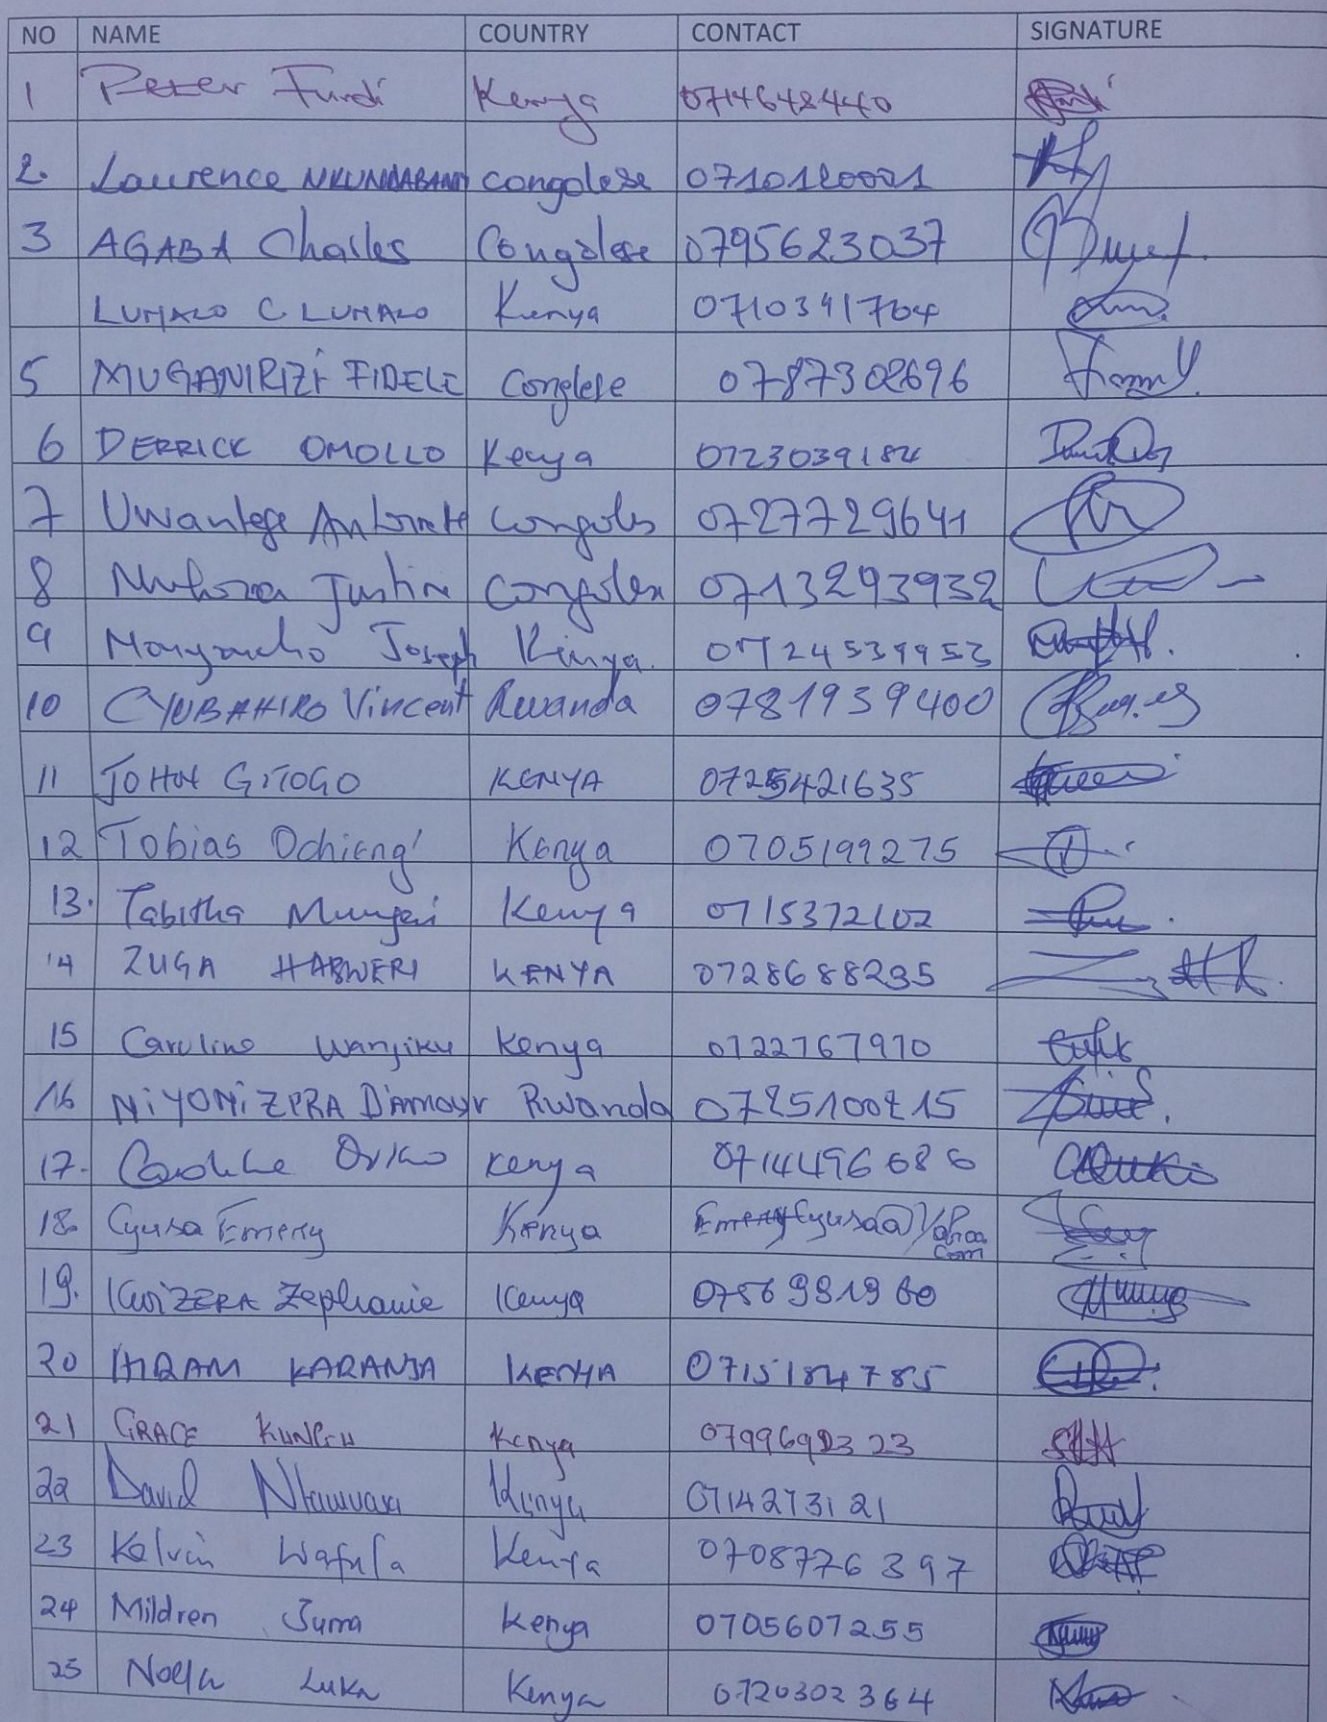 NO NAME COUNTRY CONTACT SIGNATURE
1 Peter Fundi Kenya 0714648440
2. Laurence NKUNDABANY congolese 0710120001
3 AGABA Charles Congolese 0795623037
LUMALO C LUMALO Kenya 0710341764
5 MUGANIRIZI FIDELE Conglese 0787302696
6 DERRICK OMOLLO Kenya 0723039184
7 Uwantege Antoinette Congoles 0727729641
8 Muhoza Justin 0713293932
9 Joseph Kenya. 0724539953
10 CYUBAHIRO Vincent Rwanda 0781939400
11 JOHN GITOGO KENYA 0725421635
12 Tobias Ochieng' Kenya 0705199275
13. Tabitha Kenya 0715372102
14 ZUGA HABWERI KENYA 0728688235
15 Caroline Wanjiku Kenya 0722767970
16 NiYONiZERA D'amour Rwanda 0725100215
17. Caroline Kenya 0714496686
18. Cyusa Emery Kenya
19. KwiZERA Zephanie Kenya 0756991960
20 HIRAM KARANJA KENYA 0715184785
21 GRACE KUNGU Kenya
22 David Kenya 0714273121
23 Kelvin Wafula Kenya 0708776397
24 Mildren Juma Kenya 0705607255
25 Luka Kenya 0720302364